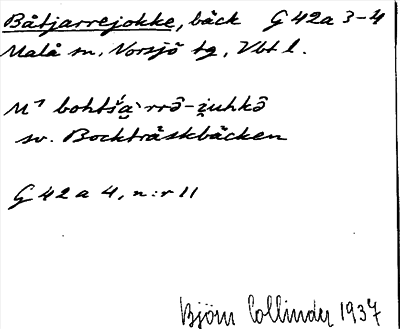 Båtjarrejokke, bäck G 42a 3-4
Malå sn, Norsjö tg, Vbt l.
M¹ bohtš́a̮`rrə̑-i̮uhkə̑
sv. Bockträskbäcken
G 42 a 4, n:r 11
Björn Collinder 1937